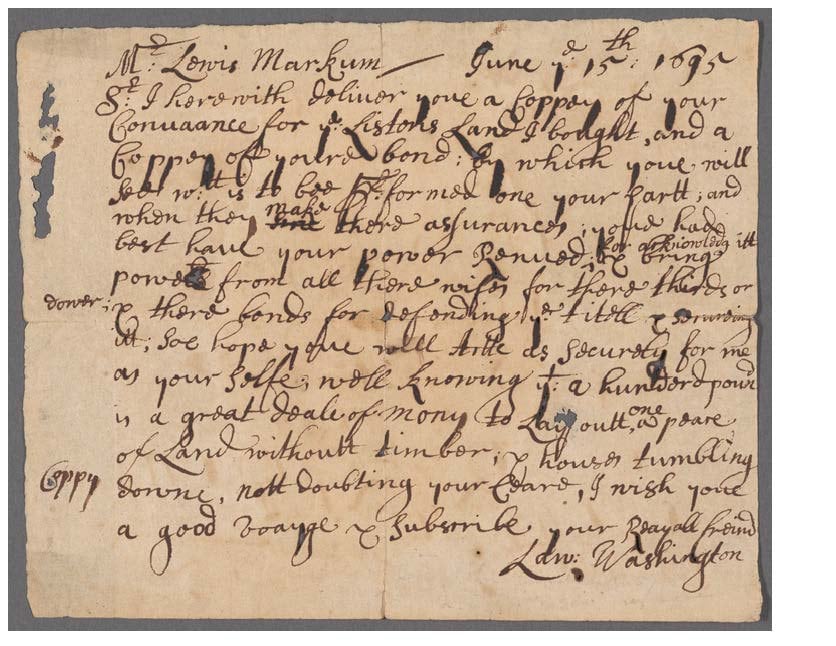 Mr: Lewis Markum — June ye 15th: 1695
Sr: I herewith deliver youe a Coppey of your
Convaance for ye: Listons Land I bought, and a
Coppey of youre bond: by which youe will
see wtt is to bee performed one your partt; and
when they make there assurances; youe had
best have your power Renued; for acknowledg itt
& bring
powers from all there wifes for there thirds or
dower; & there bonds for defending ye titell & secureing
itt; soe hope youe will Acte as securely for me
as your selfe; well knowing yt: a hunderd pound
is a great deale of mony to Lay outt, one a peace
of Land withoutt timber; & houses tumbling
Coppy
downe, nott doubting your Ceare, I wish youe
a good voayge & subscribe your Reayall freind
Law: Washington